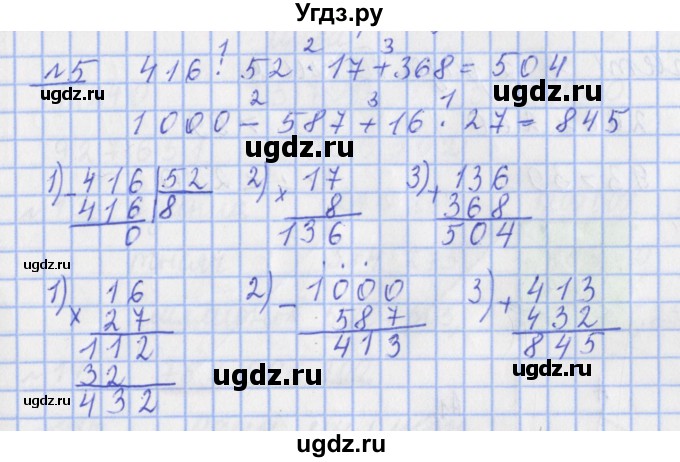 Угдз.ру
1 2 3
№5 416 : 52 · 17 + 368 = 504
2 3 1
1000 - 587 + 16 · 27 = 845
1) - 416 | 52 2) × 17 3) + 136
416 | 8 8 368
0 136 504
1) × 16 2) - 1000 3) + 413
27 587 432
112 413 845
32
432
ugdz.ru
ugdz.ru
ugdz.ru
ugdz.ru
ugdz.ru
ugdz.ru
ugdz.ru
ugdz.ru
ugdz.ru